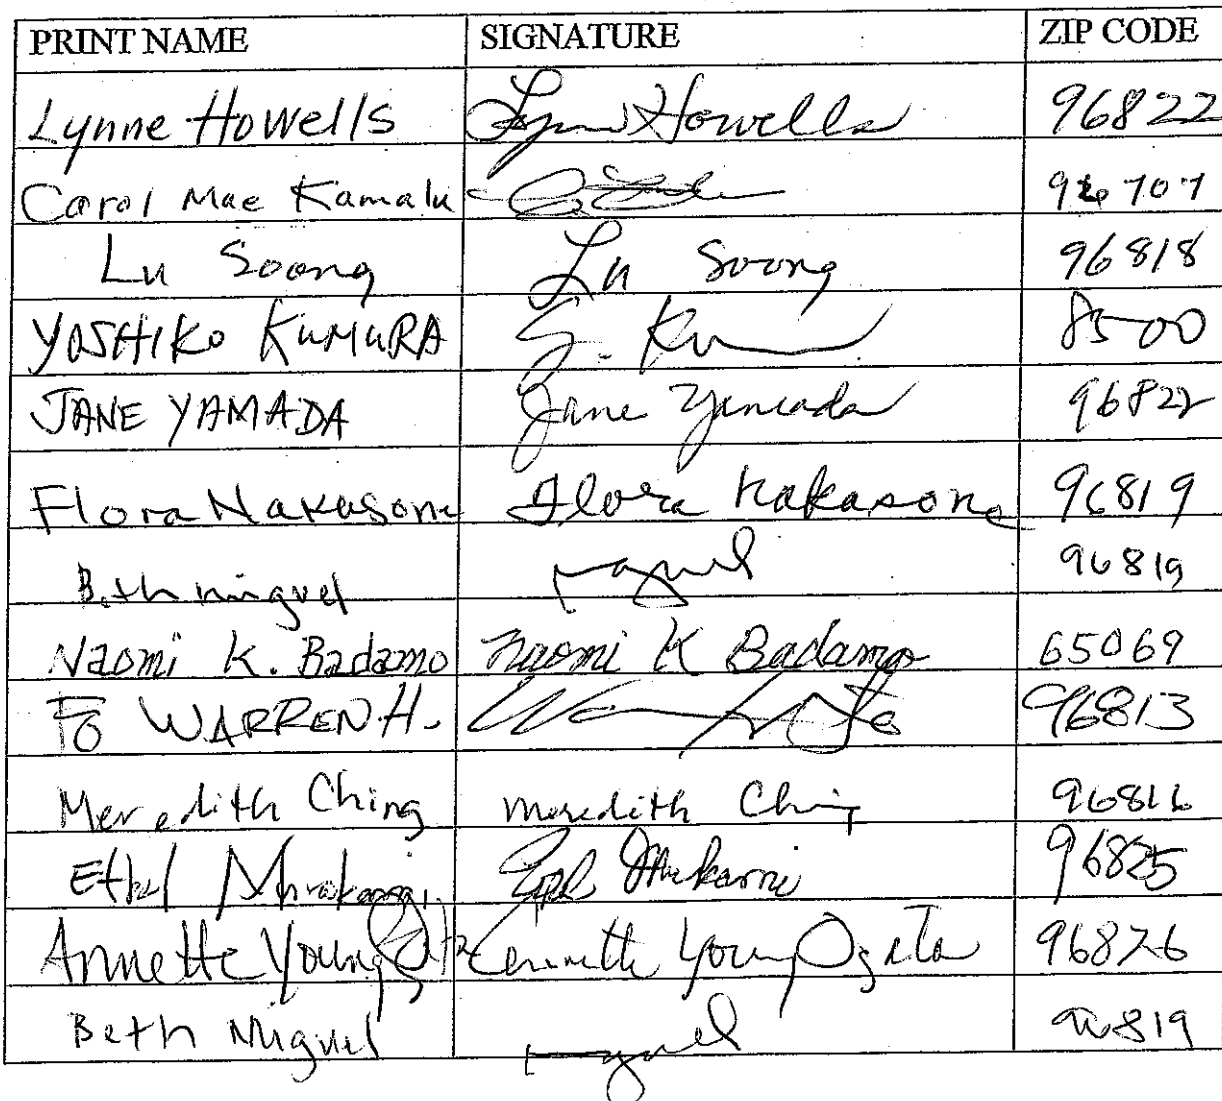 PRINT NAME SIGNATURE ZIP CODE
Lynne Howells Lynne Howells 96822
Carol Mae Kamaku 96707
Lu Soong Lu Soong 96818
YOSHIKO KUMURA Y. 8500
JANE YAMADA Jane Yamada 96822
Flora Nakasone Flora Nakasone 96819
Beth Miguel 96819
Naomi K. Badamo Naomi K Badamo 65069
FO WARREN H. 96813
Meredith Ching Meredith Ching 96816
Ethel Murakami 96825
Annette Young Annette Young Ogata 96826
Beth Miguel 96819